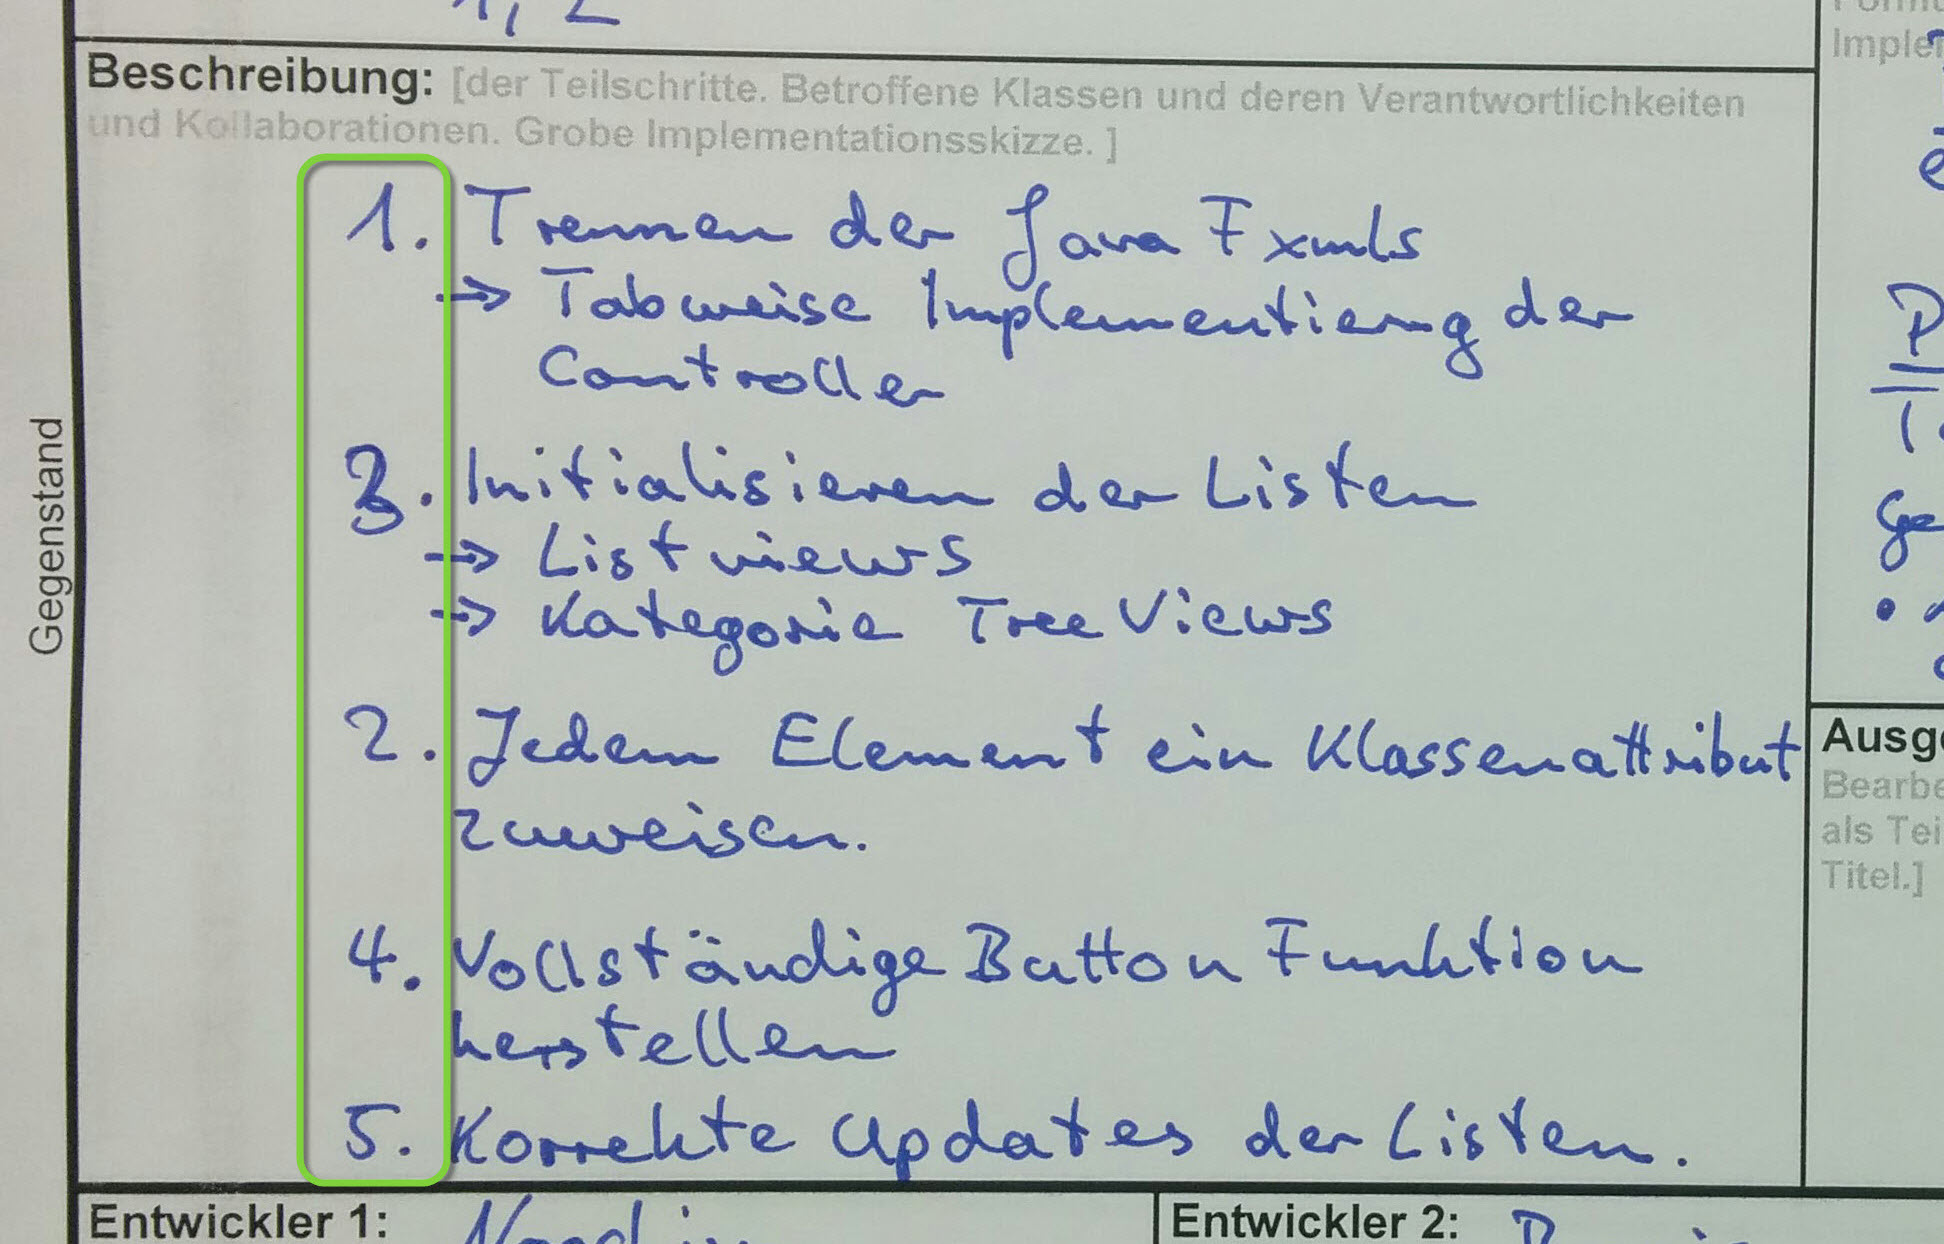 1, 2
Beschreibung: [der Teilschritte. Betroffene Klassen und deren Verantwortlichkeiten
und Kollaborationen. Grobe Implementationsskizze. ]
1. Trennen der Java Fxmls
→ Tabweise Implementierng der
Controller
3. Initialisieren der Listen
→ Listviews
→ Kategorie TreeViews
2. Jedem Element ein Klassenattribut
zuweisen.
4. Vollständige Button Funktion
herstellen
5. Korrekte Updates der Listen.
Gegenstand
Entwickler 1:
Entwickler 2:
Imple
P
Ge
Ausg
Bearbe
als Tei
Titel.]